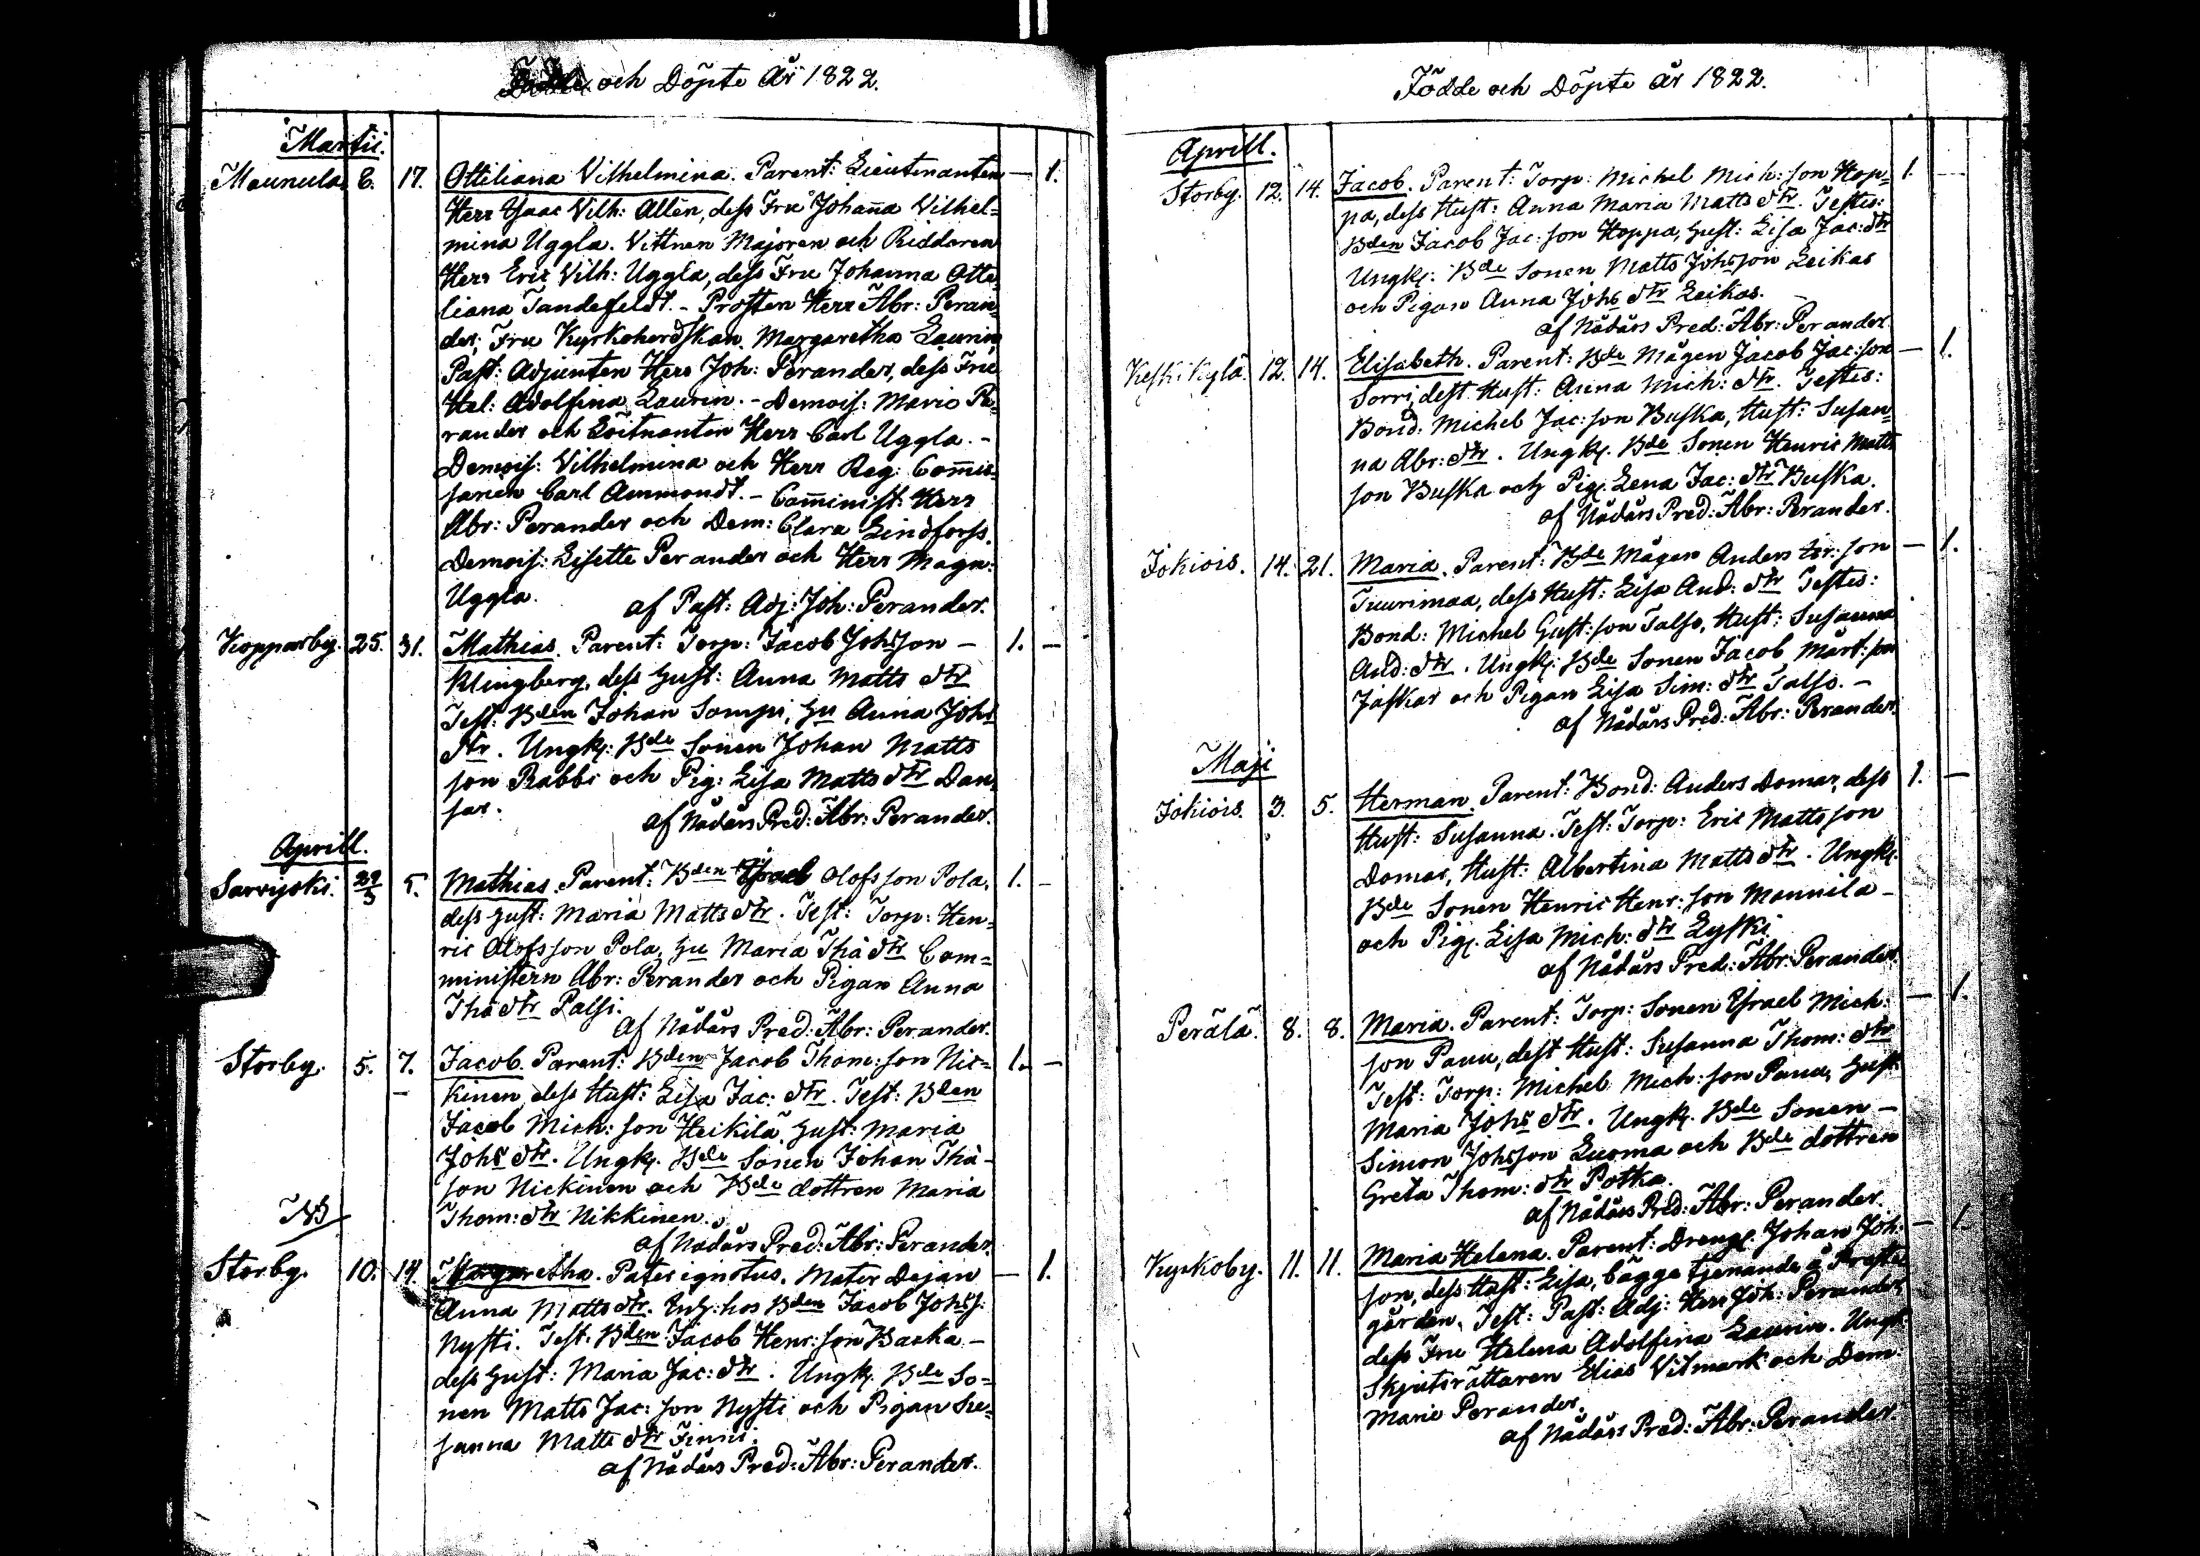 Födde och Döpte År 1822.
Martii.
Maunula. 6. 17. Ottiliana Vilhelmina. Parent: Lieutenanten — 1.
Herr Isaac Vilh: Allén, dess Fru Johanna Vilhel=
mina Uggla. Vittnen Majoren och Riddaren
Herr Eric Vilh: Uggla, dess Fru Johanna Otte
liana Tandefeldt. - Prosten Herr Abr: Peran=
der, Fru Kyrkoherdskan Margaretha Laurin,
Past: Adjunten Herr Joh: Perander, dess Fru
Hel: Adolfina Laurin. - Demois: Marie Pe=
rander och Löitnanten Herr Carl Uggla. -
Demois: Vilhelmina och Herr Reg: Commis=
sarien Carl Ammondt. - Comminist: Herr
Abr: Perander och Dem: Clara Lindforss.
Demois: Lisette Perander och Herr Magn:
Uggla. af Past: Adj: Joh: Perander.
Kopparby. 25. 31. Mathias. Parent: Torp: Jacob Johsson — 1. —
Klingberg, dess Hust: Anna Matts dtr
Test: Bden Johan Sompi, Hu Anna Johs
dtr. Ungk: Bde Sonen Johan Matts
son Rabbi och Pig: Lisa Matts dtr Dan
sar. af Nådårs Pred: Abr: Perander.
Aprill.
Sarvijoki. 29/3 5. Mathias. Parent: Bden Israel Olofsson Pola, 1. -
dess Hust: Maria Matts dtr. Test: Torp: Hen=
ric Olofsson Pola, Hu Maria Thå dtr Com=
ministern Abr: Perander och Pigan Anna
Thå dtr Palsi.
af Nådårs Pred: Abr: Perander.
Storby. 5. 7. Jacob. Parent: Bden Jacob Thom: son Nic= 1. —
kinen, dess Hust: Lisa Jac: dtr. Test: Bden
Jacob Mich: son Heikilä, Hust: Maria
Johs dtr. Ungk. Bde Sonen Johan Thå-
son Nickinen och Bde dottren Maria
Thom: dtr Nikkinen.
af Nådårs Pred: Abr: Perander.
NB
Storby. 10. 14. Margaretha. Pater ignotus. Mater Dejan — 1.
Anna Matts dtr. Enh: hos Bden Jacob Johs s:
Nysti. Test. Bden Jacob Henr: son Backa -
dess Hust: Maria Jac: dtr. Ungk. Bde So=
nen Matts Jac: son Nysti och Pigan Su=
sanna Matts dtr Finni.
af Nådårs Pred: Abr: Perander.
Födde och Döpte År 1822.
Aprill.
Storby. 12. 14. Jacob. Parent: Torp: Michel Mich: son Hop= 1. —
pa, dess Hust: Anna Maria Matts dtr. Testes:
Bden Jacob Jac: son Hoppa, Hust: Lisa Jac: dtr
Ungk: Bde Sonen Matts Johsson Leikas
och Pigan Anna Johs dtr Leikas.
af Nådårs Pred: Abr: Perander
Keskikylä. 12. 14. Elisabeth. Parent: Bde Mågen Jacob Jac: son — 1.
Sorri, dest Hust: Anna Mich: dtr. Testes:
Bond: Michel Jac: son Buska, Hust: Susan
na Abr: dtr. Ungk. Bde Sonen Henric Matts
son Buska och Pig. Lena Jac: dtr Buska.
af Nådårs Pred: Abr: Perander.
Jokiois. 14. 21. Maria. Parent: Bde Mågen Anders son — 1.
Tuurimaa, dess Hust: Lisa And: dtr Testes:
Bond: Michel Gust: son Talso, Hust: Susanna
And: dtr. Ungk: Bde Sonen Jacob Mårt: son
Jaskar och Pigan Lisa Sim: dtr Talso. -
af Nådårs Pred: Abr: Perander.
Maji
Jokiois. 3. 5. Herman. Parent: Bond: Anders Domar, dess 1. —
Hust: Susanna. Test: Torp: Eric Mattsson
Domar, Hust: Albertina Matts dtr. Ungk.
Bde Sonen Henric Henr: son Mannila -
och Pig. Lisa Mich: dtr Lyski.
af Nådårs Pred: Abr: Perander.
Perälä. 8. 8. Maria. Parent: Torp: Sonen Israel Mich: — 1.
son Panu, dest Hust: Susanna Thom: dtr
Test: Torp: Michel Mich: son Panu, Hust
Maria Johs dtr. Ungk. Bde Sonen -
Simon Johsson Luoma och Bde dottren
Greta Thom: dtr Potka.
af Nådårs Pred: Abr: Perander.
Kyrkoby. 11. 11. Maria Helena. Parent: Dreng. Johan Joh: — 1.
son, dess Hust: Lisa, bägge tjenande å Prest
gården. Test: Past: Adj: Herr Joh: Perander,
dess Fru Helena Adolfina Laurin. Ungk:
Skjutsrättaren Elias Vitmark och Dem
Marie Perander.
af Nådårs Pred: Abr: Perander.